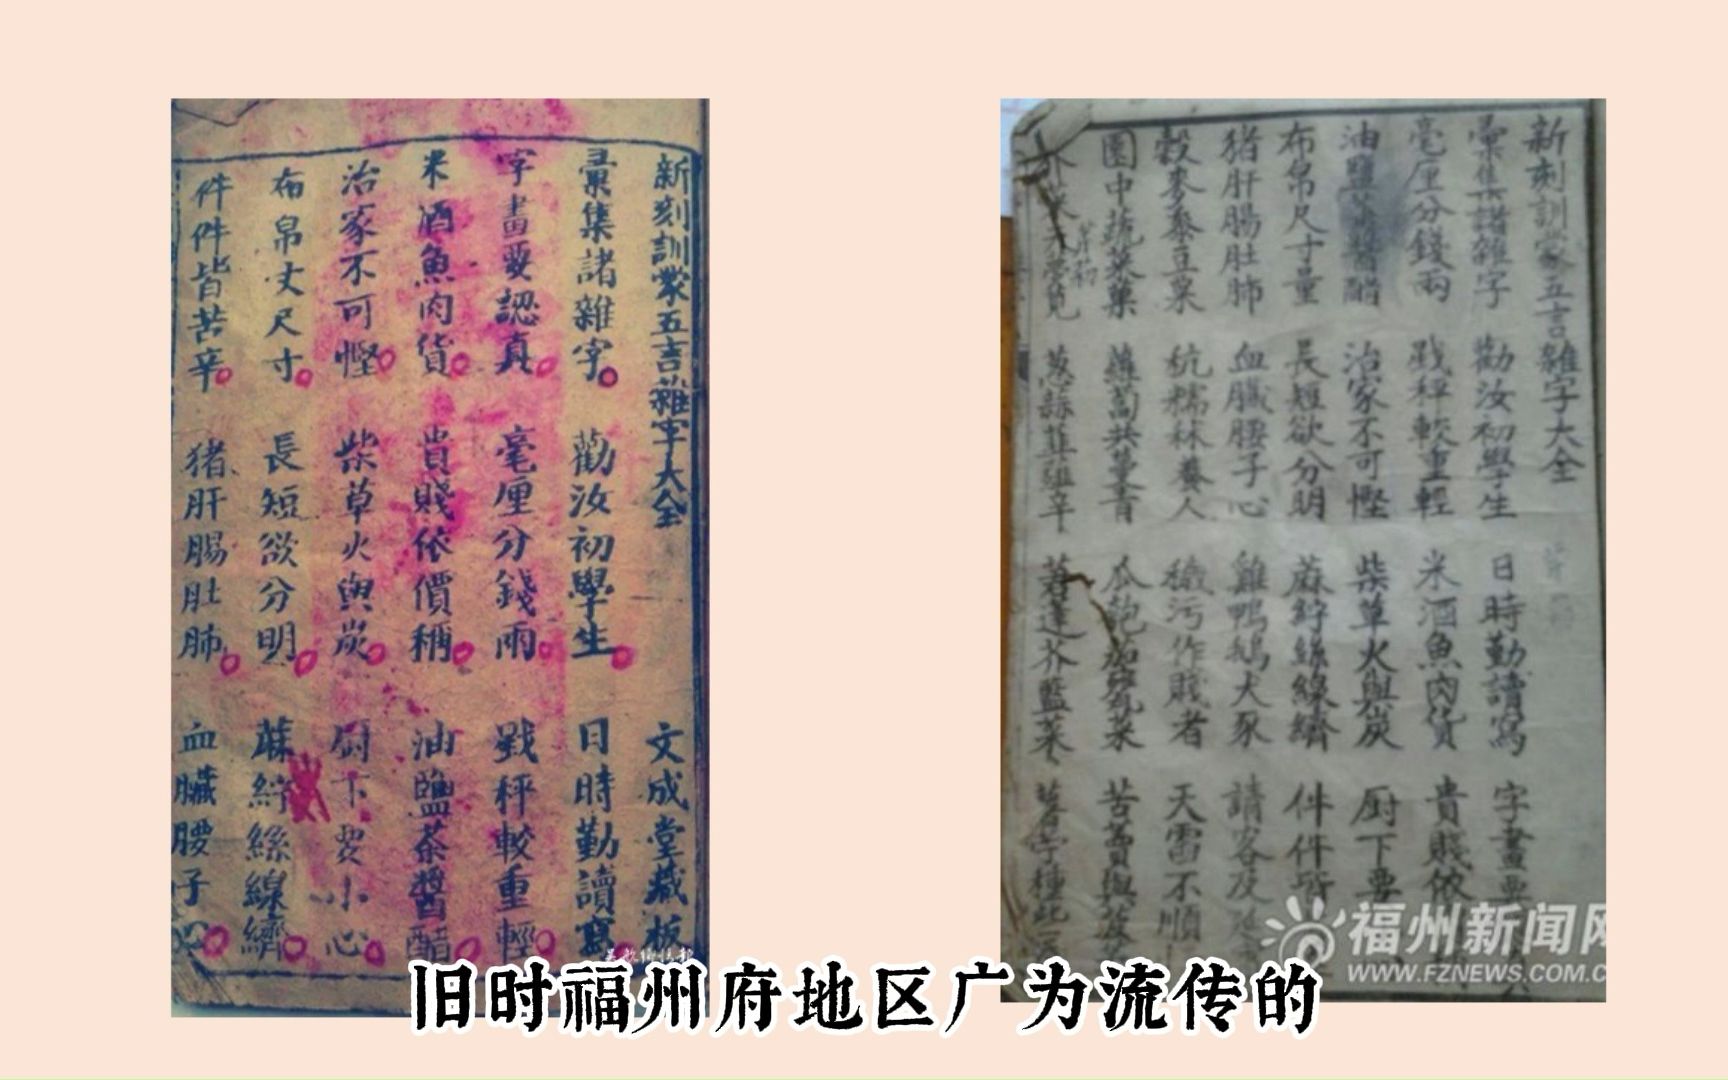 新刻訓蒙五言雜字大全 文成堂藏板
彙集諸雜字 勸汝初學生 日時勤讀寫
字畫要認真 毫厘分錢兩 戥秤較重輕
米酒魚肉貨 貴賤依價稱 油鹽茶醬醋
治家不可慳 柴草火與炭 廚下要小心
布帛丈尺寸 長短欲分明 蔴紵絲線纃
件件皆苦辛 猪肝腸肚肺 血臟腰子心
新刻訓蒙五言雜字大全
彙集諸雜字 勸汝初學生 日時勤讀寫 字畫要
毫厘分錢兩 戥秤較重輕 米酒魚肉貨 貴賤依
油鹽茶醬醋 治家不可慳 柴草火與炭 廚下要
布帛尺寸量 長短欲分明 蔴紵絲線纃 件件皆
猪肝腸肚肺 血臟腰子心 雞鴨鵝犬豕 請客及
穀麥黍豆粟 秔糯秫養人 穢污作賤者 天雷不順
園中蔬菜菓 共蔓菁 瓜匏茄 菜 苦賣與菠
芥菜 莧 葱蒜韮 辛 莙薘芥藍菜 種
福州新闻网
WWW.FZNEWS.COM.C
旧时福州府地区广为流传的